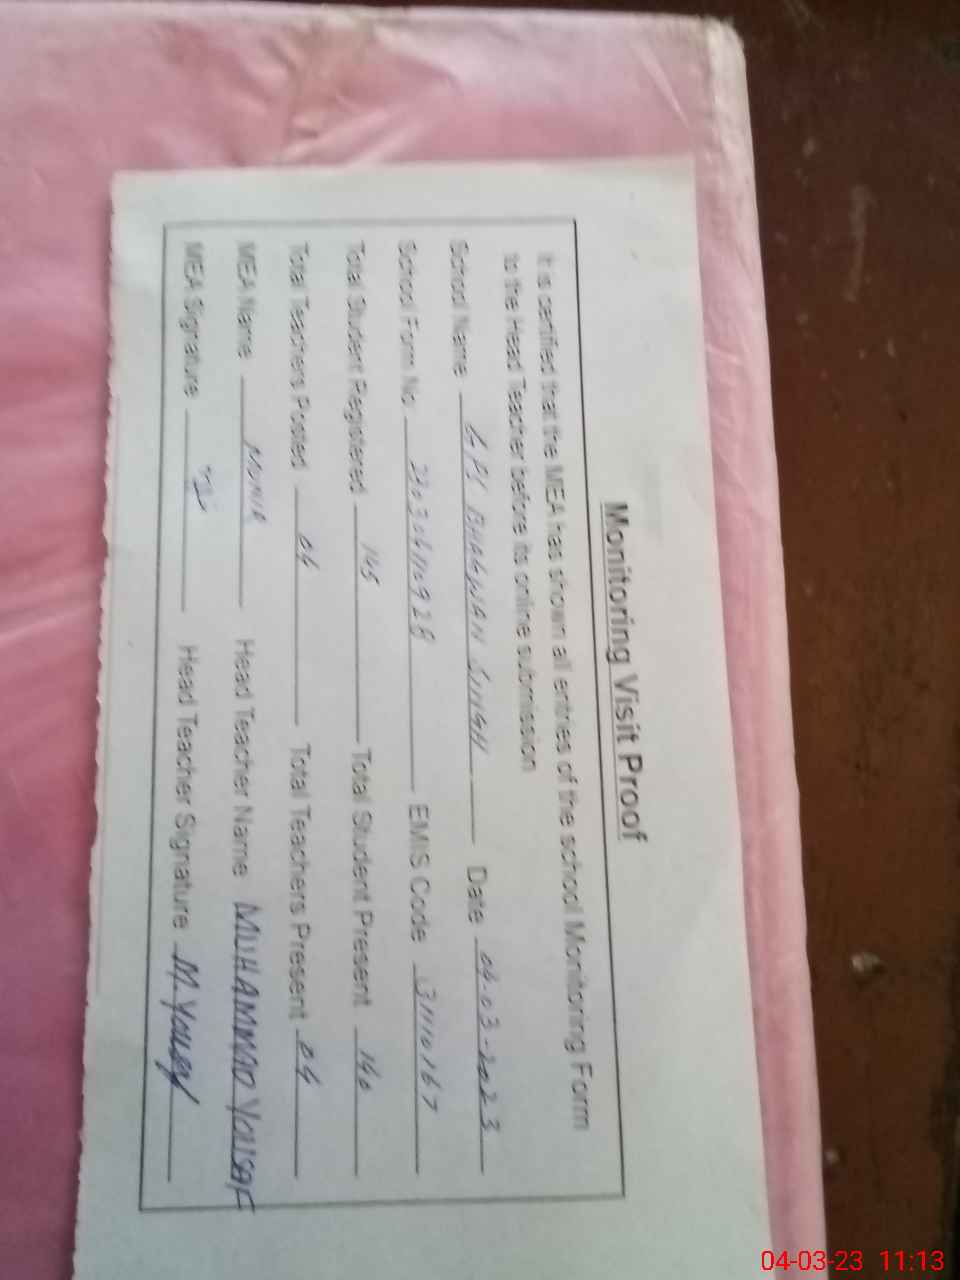 Monitoring Visit Proof
It is certified that the MEA has shown all entries of the school Monitoring Form
to the Head Teacher before its online submission
School Name GPS BHAGWAN SINGH Date 04-03-2023
School Form No EMIS Code 31110167
Total Student Registered 145 Total Student Present 140
Total Teachers Posted 04 Total Teachers Present 04
MEA Name MUNIR Head Teacher Name MUHAMMAD YOUSAF
MEA Signature Head Teacher Signature M. Yousaf
04-03-23 11:13